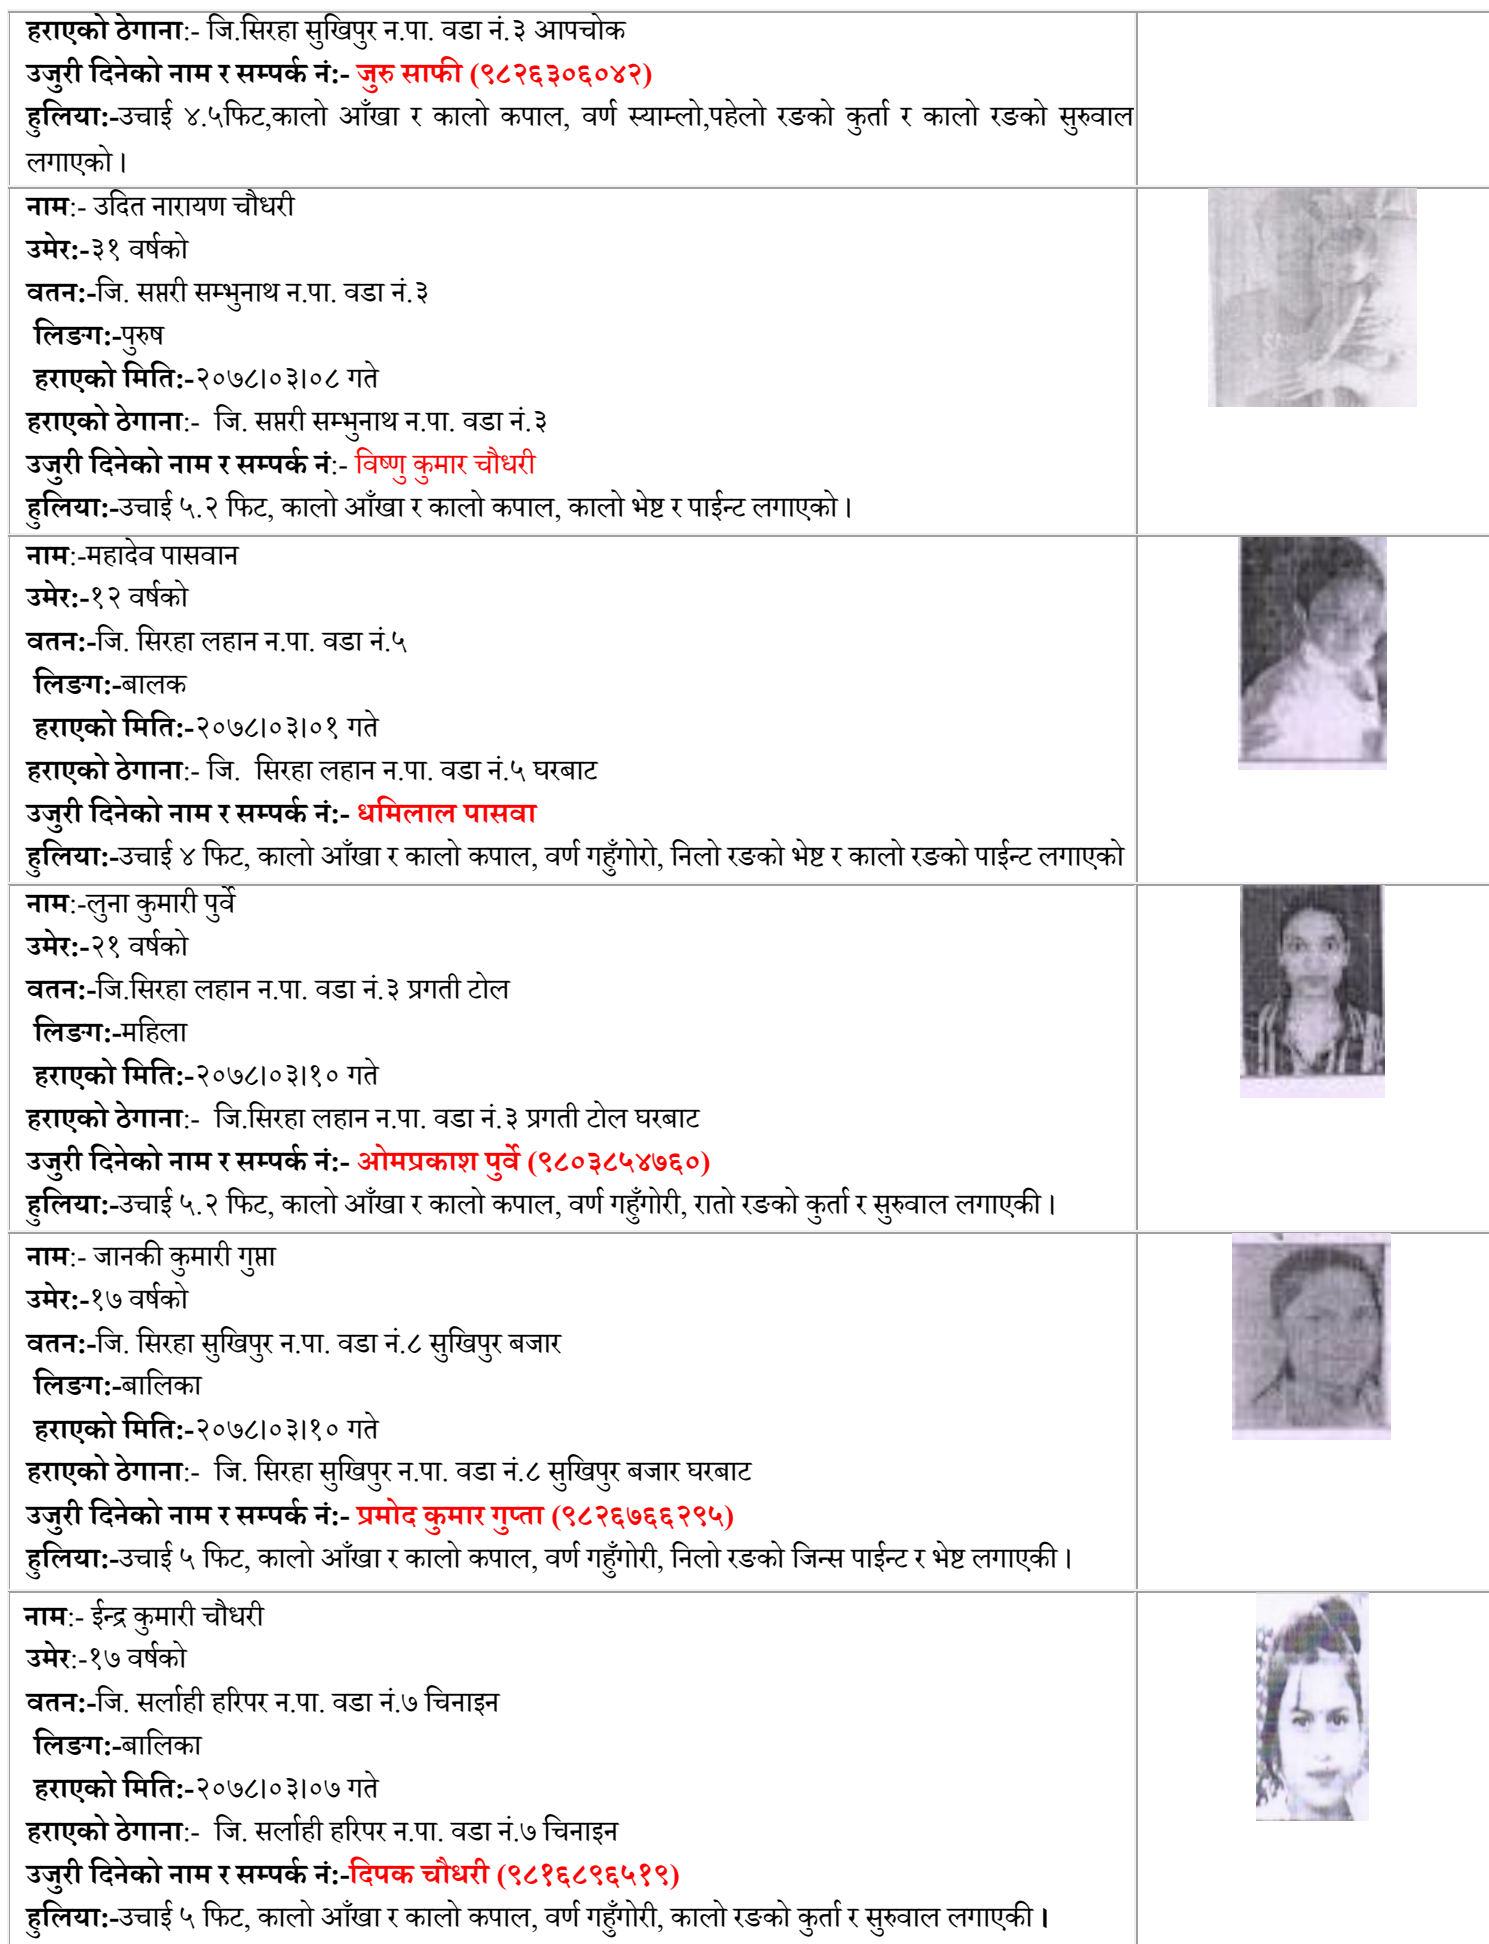 हराएको ठेगाना:- जि.सिरहा सुखिपुर न.पा. वडा नं.३ आपचोक
उजुरी दिनेको नाम र सम्पर्क नं:- जुरु साफी (९८२६३०६०४२)
हुलिया:-उचाई ४.५फिट,कालो आँखा र कालो कपाल, वर्ण स्याम्लो,पहेलो रङको कुर्ता र कालो रङको सुरुवाल
लगाएको।
नाम:- उदित नारायण चौधरी
उमेर:-३१ वर्षको
वतन:-जि. सप्तरी सम्भुनाथ न.पा. वडा नं.३
लिङग:-पुरुष
हराएको मिति:-२०७८।०३।०८ गते
हराएको ठेगाना:- जि. सप्तरी सम्भुनाथ न.पा. वडा नं.३
उजुरी दिनेको नाम र सम्पर्क नं:- विष्णु कुमार चौधरी
हुलिया:-उचाई ५.२ फिट, कालो आँखा र कालो कपाल, कालो भेष्ट र पाईन्ट लगाएको।
नाम:-महादेव पासवान
उमेर:-१२ वर्षको
वतन:-जि. सिरहा लहान न.पा. वडा नं.५
लिङग:-बालक
हराएको मिति:-२०७८।०३।०१ गते
हराएको ठेगाना:- जि. सिरहा लहान न.पा. वडा नं.५ घरबाट
उजुरी दिनेको नाम र सम्पर्क नं:- धमिलाल पासवा
हुलिया:-उचाई ४ फिट, कालो आँखा र कालो कपाल, वर्ण गहुँगोरो, निलो रङको भेष्ट र कालो रङको पाईन्ट लगाएको
नाम:-लुना कुमारी पुर्वे
उमेर:-२१ वर्षको
वतन:-जि.सिरहा लहान न.पा. वडा नं.३ प्रगती टोल
लिङग:-महिला
हराएको मिति:-२०७८।०३।१० गते
हराएको ठेगाना:- जि.सिरहा लहान न.पा. वडा नं.३ प्रगती टोल घरबाट
उजुरी दिनेको नाम र सम्पर्क नं:- ओमप्रकाश पुर्वे (९८०३८५४७६०)
हुलिया:-उचाई ५.२ फिट, कालो आँखा र कालो कपाल, वर्ण गहुँगोरी, रातो रङको कुर्ता र सुरुवाल लगाएकी।
नाम:- जानकी कुमारी गुप्ता
उमेर:-१७ वर्षको
वतन:-जि. सिरहा सुखिपुर न.पा. वडा नं.८ सुखिपुर बजार
लिङग:-बालिका
हराएको मिति:-२०७८।०३।१० गते
हराएको ठेगाना:- जि. सिरहा सुखिपुर न.पा. वडा नं.८ सुखिपुर बजार घरबाट
उजुरी दिनेको नाम र सम्पर्क नं:- प्रमोद कुमार गुप्ता (९८२६७६६२९५)
हुलिया:-उचाई ५ फिट, कालो आँखा र कालो कपाल, वर्ण गहुँगोरी, निलो रङको जिन्स पाईन्ट र भेष्ट लगाएकी।
नाम:- ईन्द्र कुमारी चौधरी
उमेर:-१७ वर्षको
वतन:-जि. सर्लाही हरिपर न.पा. वडा नं.७ चिनाइन
लिङग:-बालिका
हराएको मिति:-२०७८।०३।०७ गते
हराएको ठेगाना:- जि. सर्लाही हरिपर न.पा. वडा नं.७ चिनाइन
उजुरी दिनेको नाम र सम्पर्क नं:-दिपक चौधरी (९८१६८९६५१९)
हुलिया:-उचाई ५ फिट, कालो आँखा र कालो कपाल, वर्ण गहुँगोरी, कालो रङको कुर्ता र सुरुवाल लगाएकी।